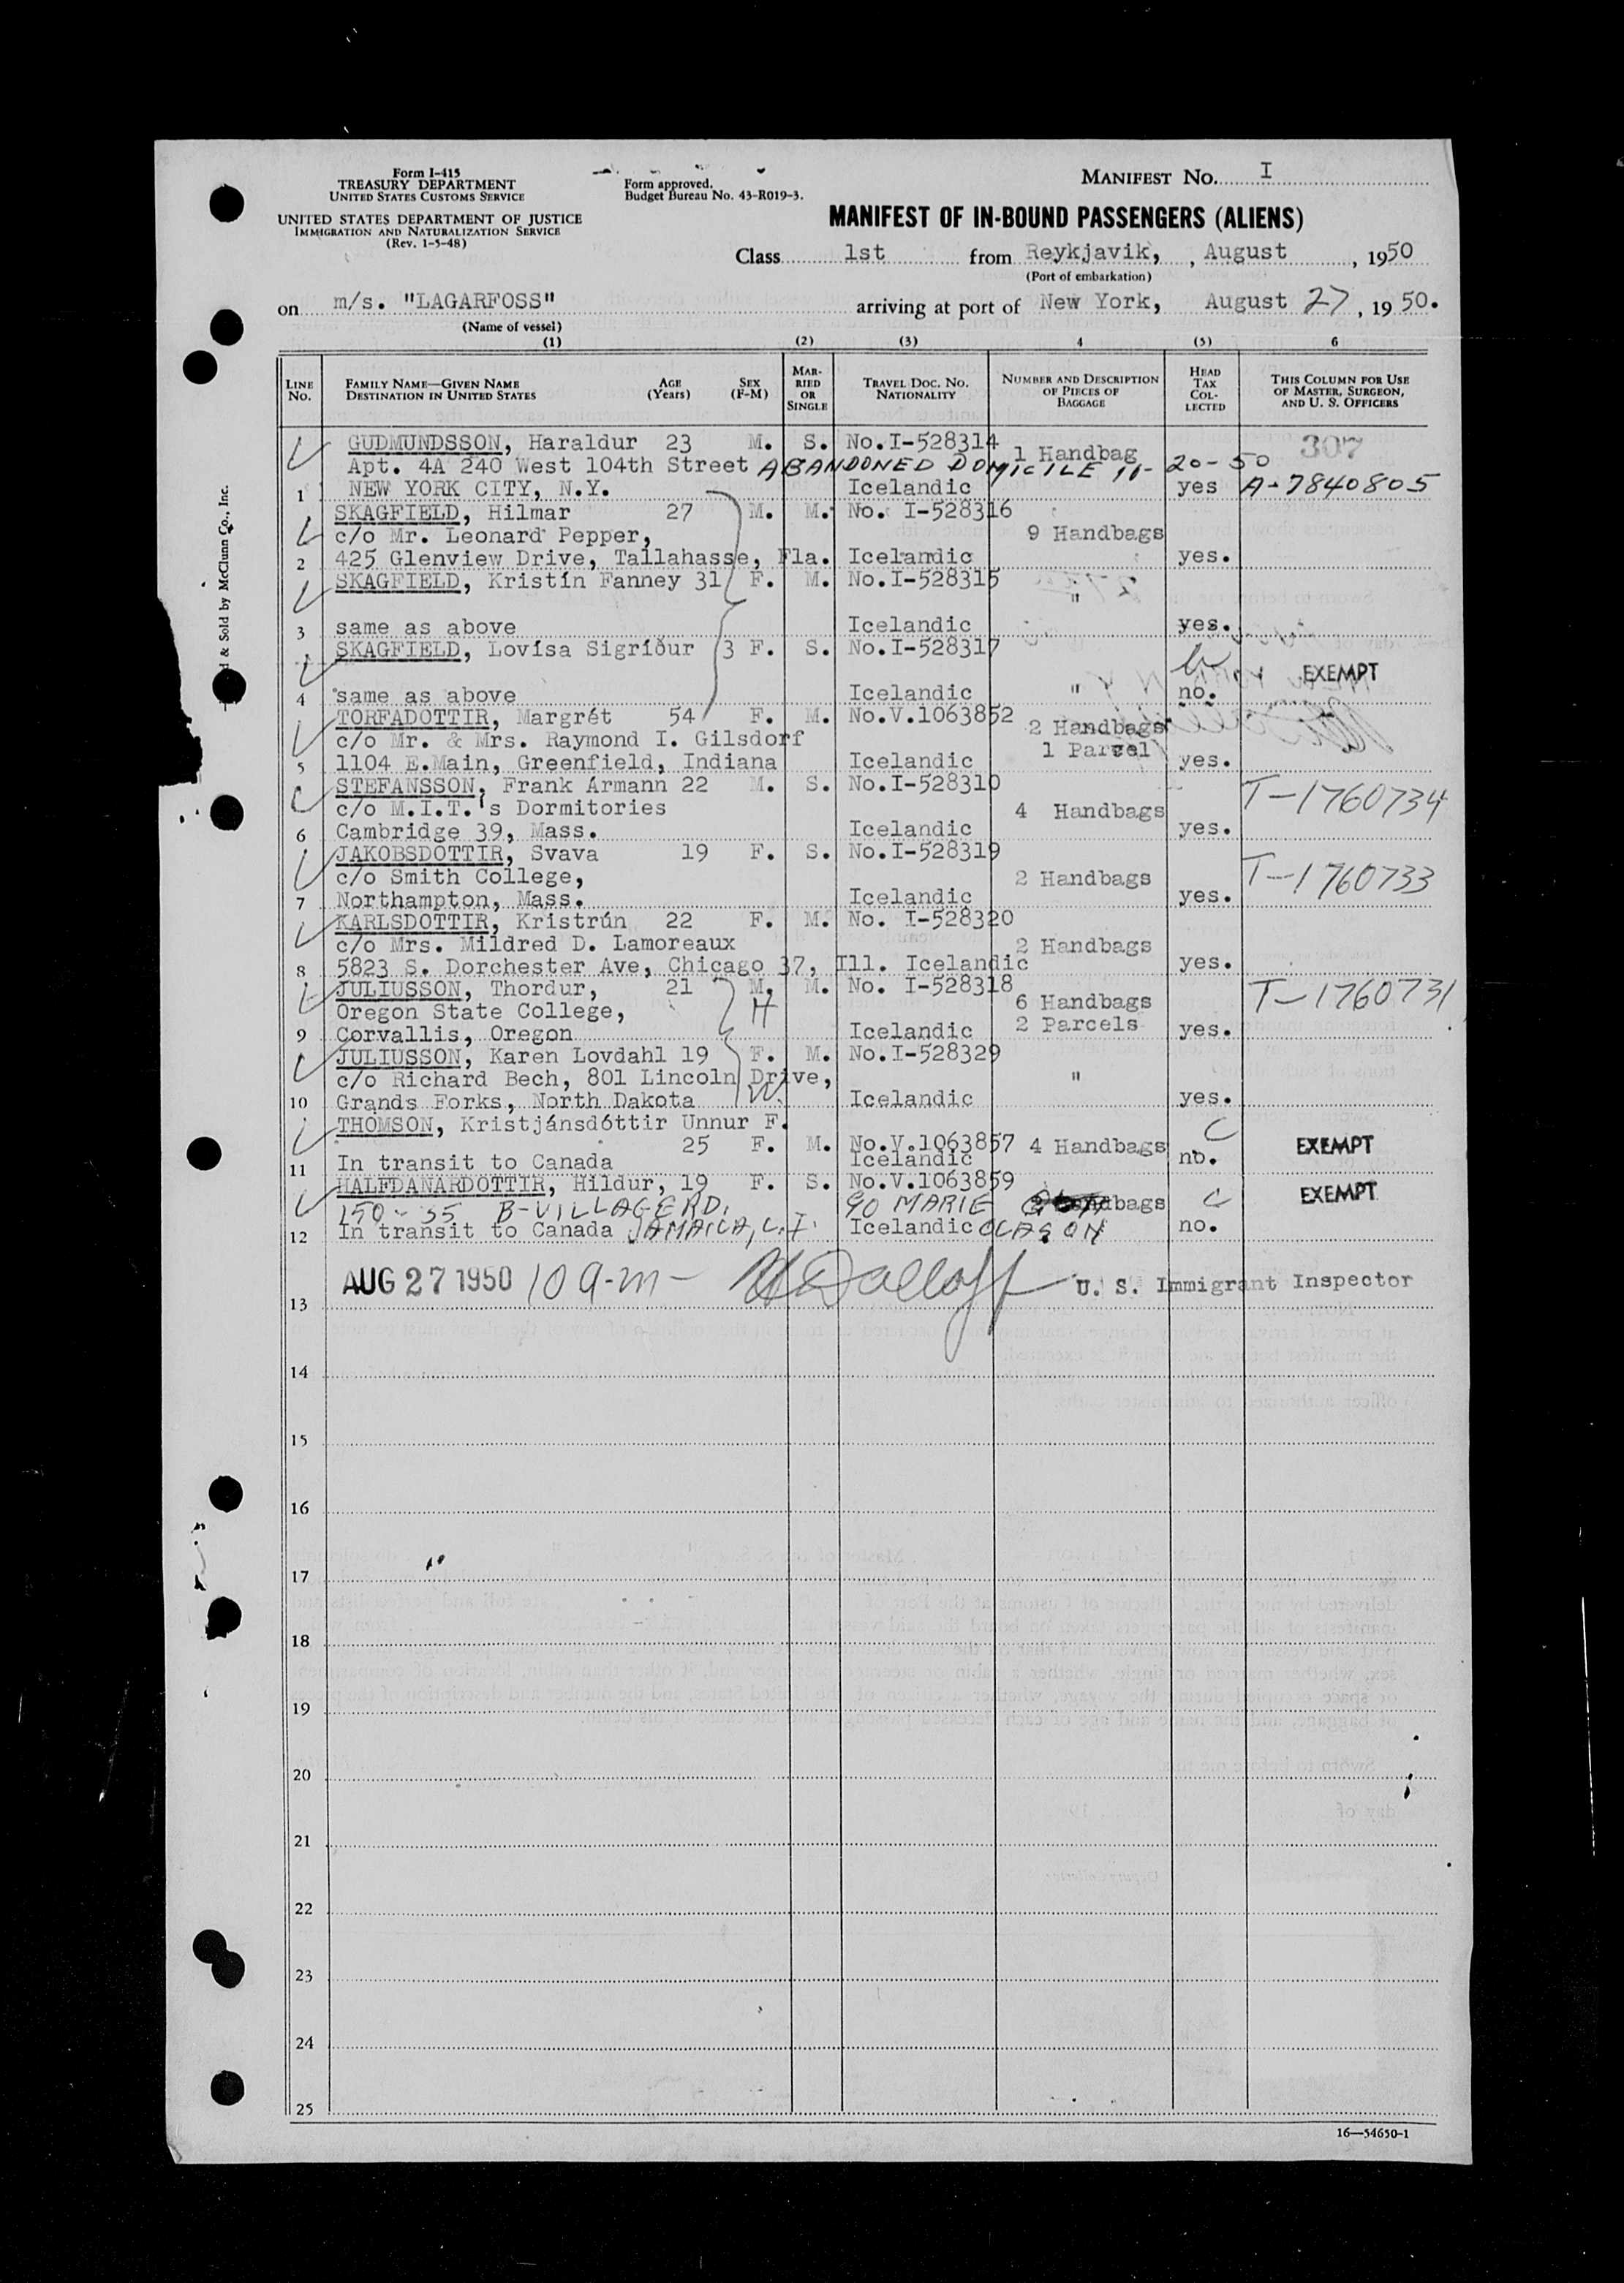 Form I-415
TREASURY DEPARTMENT
UNITED STATES CUSTOMS SERVICE
UNITED STATES DEPARTMENT OF JUSTICE
IMMIGRATION AND NATURALIZATION SERVICE
(Rev. 1-5-48)
Form approved.
Budget Bureau No. 43-R019-3.
MANIFEST NO. I
MANIFEST OF IN-BOUND PASSENGERS (ALIENS)
Class 1st from Reykjavik, , August , 1950
(Port of embarkation)
on m/s. "LAGARFOSS" arriving at port of New York, August 27, 1950.
(Name of vessel)
(1) (2) (3) 4 (5) 6
LINE NO. FAMILY NAME—GIVEN NAME DESTINATION IN UNITED STATES AGE (Years) SEX (F-M) MARRIED OR SINGLE TRAVEL DOC. NO. NATIONALITY NUMBER AND DESCRIPTION OF PIECES OF BAGGAGE HEAD TAX COLLECTED THIS COLUMN FOR USE OF MASTER, SURGEON, AND U. S. OFFICERS
GUDMUNDSSON, Haraldur 23 M. S. No.I-528314 1 Handbag 307
Apt. 4A 240 West 104th Street ABANDONED DOMICILE 11-20-50
1 NEW YORK CITY, N.Y. Icelandic yes A-7840805
SKAGFIELD, Hilmar 27 M. M. No. I-528316
c/o Mr. Leonard Pepper, 9 Handbags
2 425 Glenview Drive, Tallahasse, Fla. Icelandic yes.
SKAGFIELD, Kristín Fanney 31 F. M. No.I-528315
"
3 same as above Icelandic yes.
SKAGFIELD, Lovísa Sigríður 3 F. S. No.I-528317
EXEMPT
4 same as above Icelandic " no.
TORFADOTTIR, Margrét 54 F. M. No.V.1063852 2 Handbags
c/o Mr. & Mrs. Raymond I. Gilsdorf 1 Parcel
5 1104 E.Main, Greenfield, Indiana Icelandic yes.
STEFANSSON, Frank Ármann 22 M. S. No.I-528310 T-1760734
c/o M.I.T.'s Dormitories 4 Handbags
6 Cambridge 39, Mass. Icelandic yes.
JAKOBSDOTTIR, Svava 19 F. S. No.I-528319 T-1760733
c/o Smith College, 2 Handbags
7 Northampton, Mass. Icelandic yes.
KARLSDOTTIR, Kristrún 22 F. M. No. I-528320
c/o Mrs. Mildred D. Lamoreaux 2 Handbags
8 5823 S. Dorchester Ave, Chicago 37, Ill. Icelandic yes.
JULIUSSON, Thordur, 21 M. M. No. I-528318 T-1760731
Oregon State College, H 6 Handbags
9 Corvallis, Oregon Icelandic 2 Parcels yes.
JULIUSSON, Karen Lovdahl 19 F. M. No.I-528329
c/o Richard Bech, 801 Lincoln Drive, "
10 Grands Forks, North Dakota W. Icelandic yes.
THOMSON, Kristjánsdóttir Unnur F. C
25 F. M. No.V.1063857 4 Handbags EXEMPT
11 In transit to Canada Icelandic no.
HALFDANARDOTTIR, Hildur, 19 F. S. No.V.1063859 C EXEMPT
150-35 B-VILLAGE RD. MARIE
12 In transit to Canada JAMAICA, L.I. Icelandic OLASON no.
AUG 27 1950 10 a-m- U. S. Immigrant Inspector
13
14
15
16
17
18
19
20
21
22
23
24
25
16—54650-1
& Sold by McClunn Co., Inc.